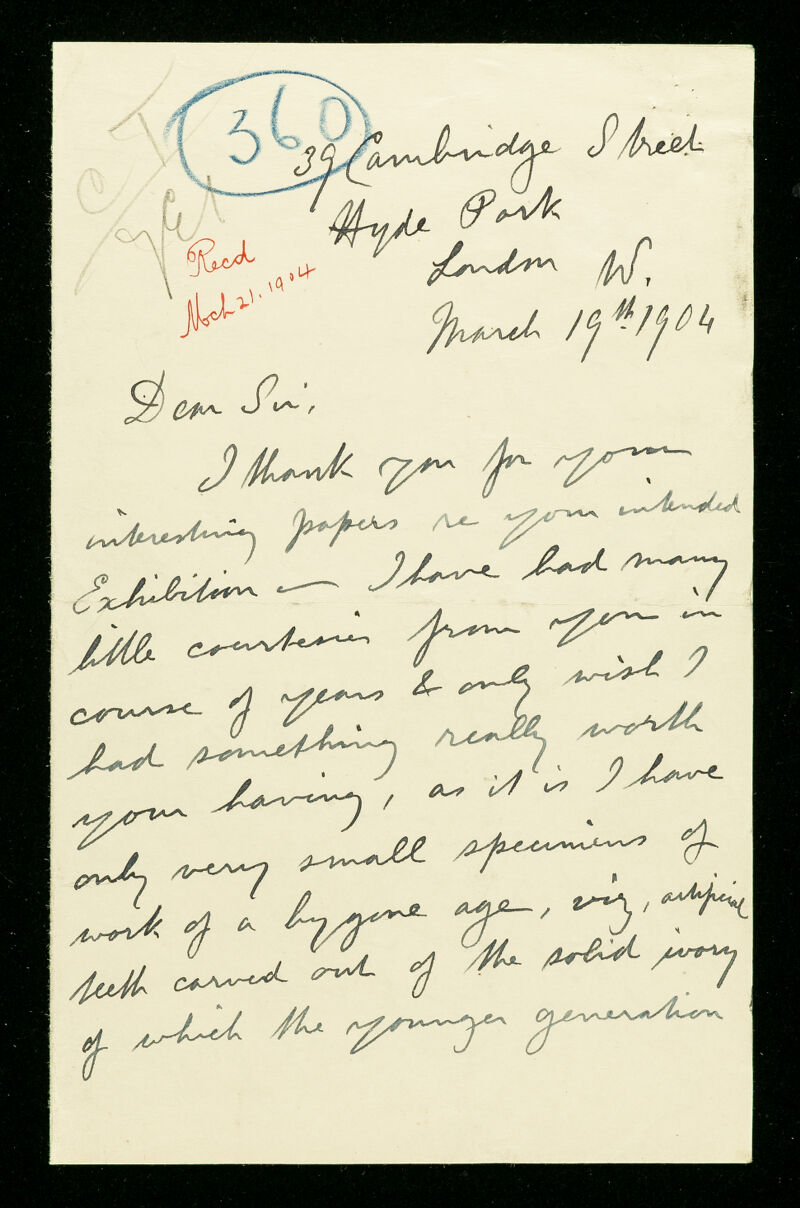 360
39 Cambridge Street
Hyde Park
London W.
March 19th. 1904
Recd
Mch 21. 1904
Dear Sir,
I thank you for your
interesting papers re your intended
Exhibition — I have had many
little courtesies from you in
course of years & only wish I
had something really worth
your having, as it is I have
only very small specimens of
work of a bygone age, viz, artificial
teeth carved out of the solid ivory
of which the younger generation